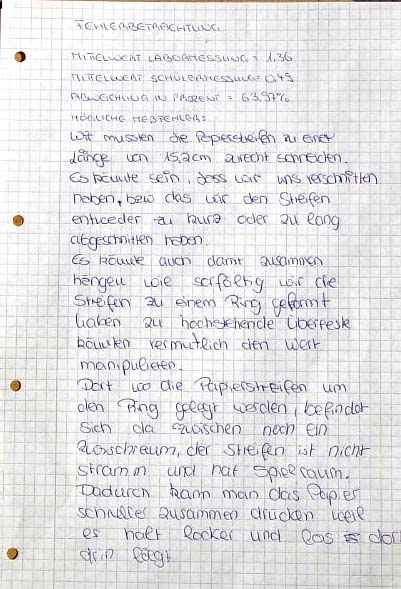 FEHLERBETRACHTUNG
MITTELWERT LABORMESSUNG = 1,36
MITTELWERT SCHÜLERMESSUNG = 0,49
ABWEICHUNG IN PROZENT = 63,97%
MÖGLICHE MEßFEHLER:
Wir mussten die Papierstreifen zu einer
Länge von 15,2cm zurecht schneiden.
Es könnte sein, dass wir uns verschnitten
haben, bzw das wir den Streifen
entweder zu kurz oder zu lang
abgeschnitten haben.
Es könnte auch damit zusammen
hängen wie sorfältig wir die
Streifen zu einem Ring geformt
haben zu hochstehende Überreste
könnten vermutlich den Wert
manipulieren.
Dort wo die Papierstreifen um
den Ring gelegt werden, befindet
sich da zwischen noch ein
Zwischraum, der Streifen ist nicht
stramm und hat Spielraum.
Dadurch kann man das Papier
schneller zusammen drücken weil
es halt locker und los dort
drin liegt.